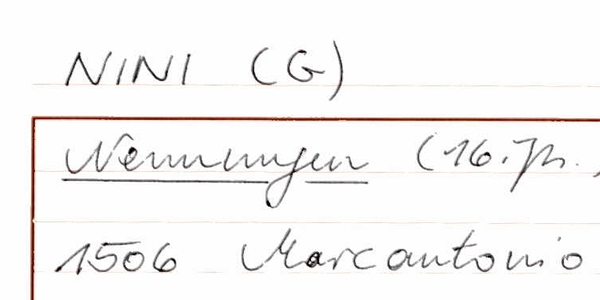 NINI (G)
Nennungen (16. Jh.)
1506 Marcantonio